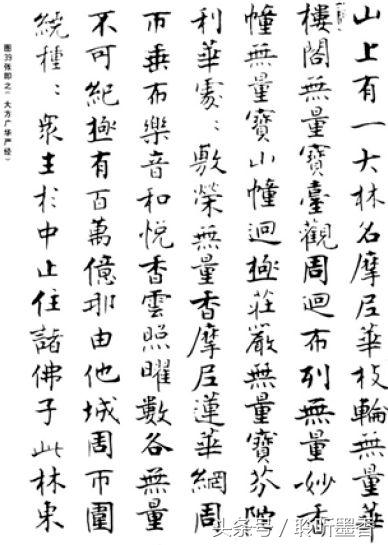 山上有一大林名摩尼華枝輪無量華
樓閣無量寶臺觀周迴布列無量妙香
幢無量寶山幢迴極莊嚴無量寶芬陁
利華處〻敷榮無量香摩尼蓮華網周
帀垂布樂音和悅香雲照曜數各無量
不可紀極有百萬億那由他城周帀圍
繞種〻眾生於中止住諸佛子此林東
图39张即之《大方广华严经》
头条号 / 聆听墨香